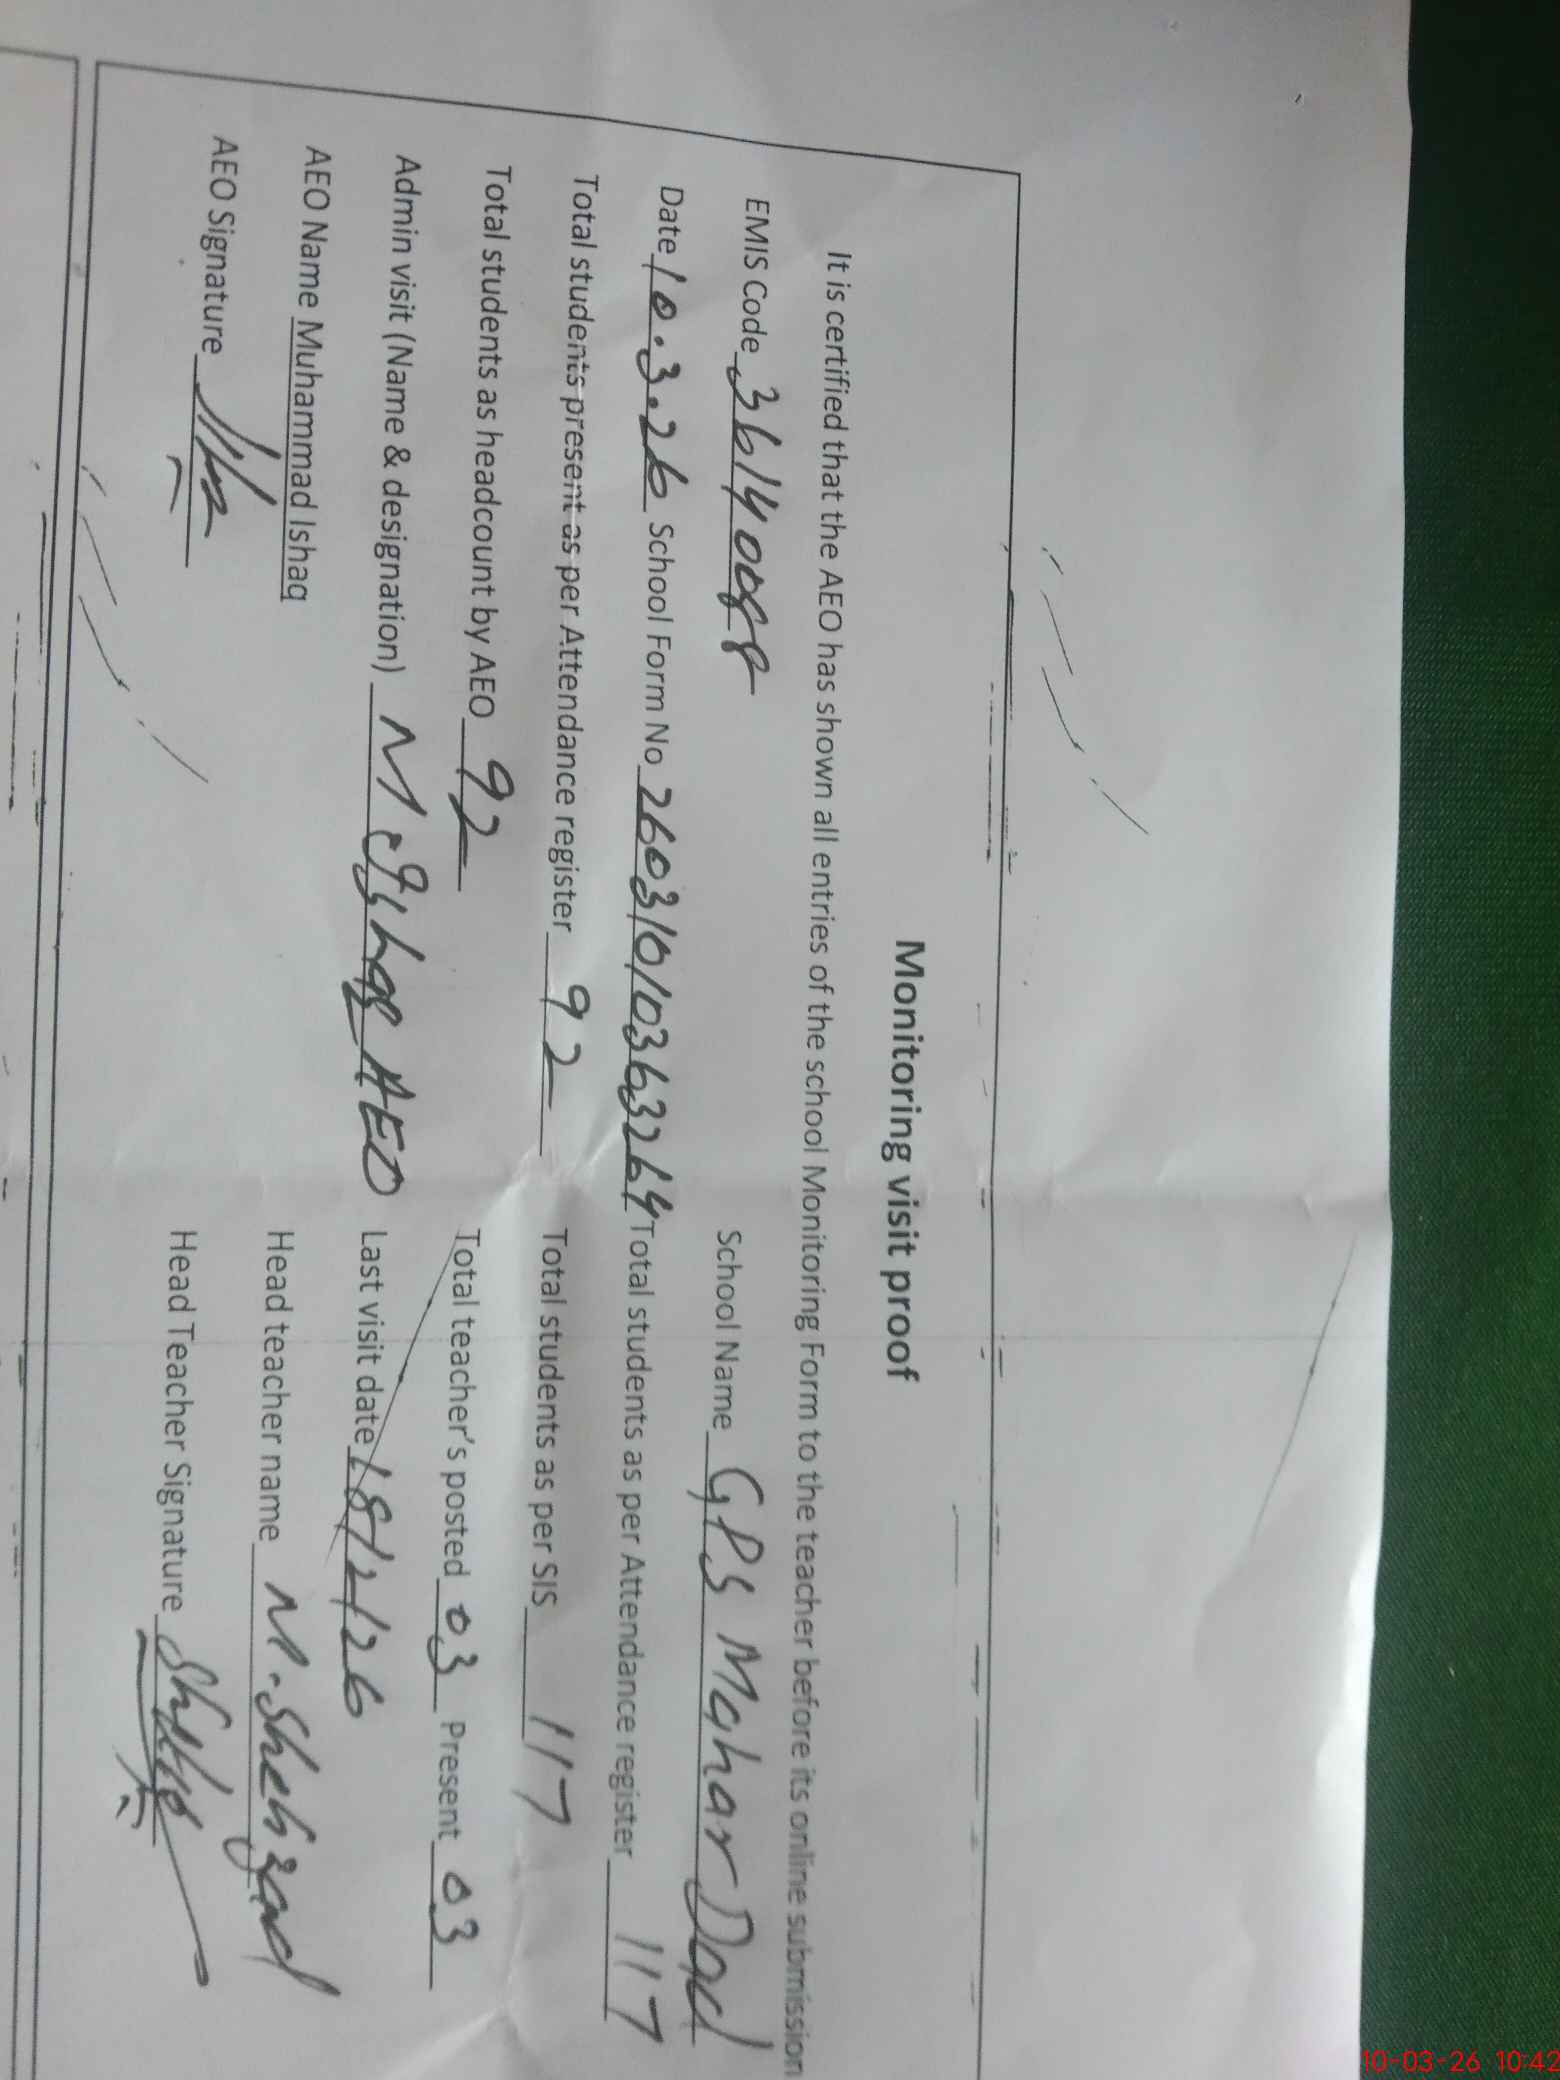 Monitoring visit proof
It is certified that the AEO has shown all entries of the school Monitoring Form to the teacher before its online submission
EMIS Code 36140088 School Name GPS Mahar Dad
Date 10.3.26 School Form No 26031010363264 Total students as per Attendance register 117
Total students present as per Attendance register 92 Total students as per SIS 117
Total students as headcount by AEO 92 Total teacher's posted 03 Present 03
Admin visit (Name & designation) M. Ishaq AEO Last visit date 18/2/26
AEO Name Muhammad Ishaq Head teacher name M. Shehzad
AEO Signature Head Teacher Signature
10-03-26 10:42